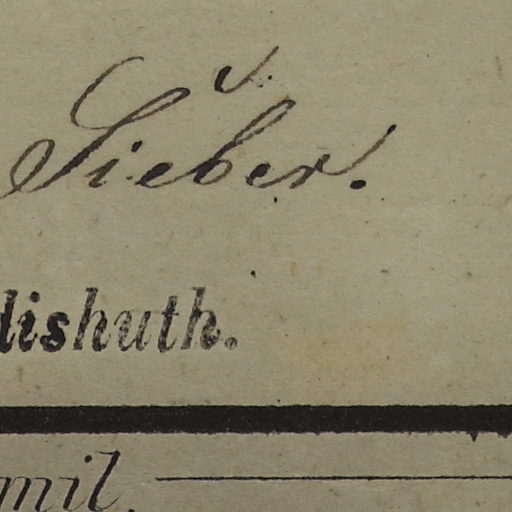 Sieber.
dishuth.
mil.